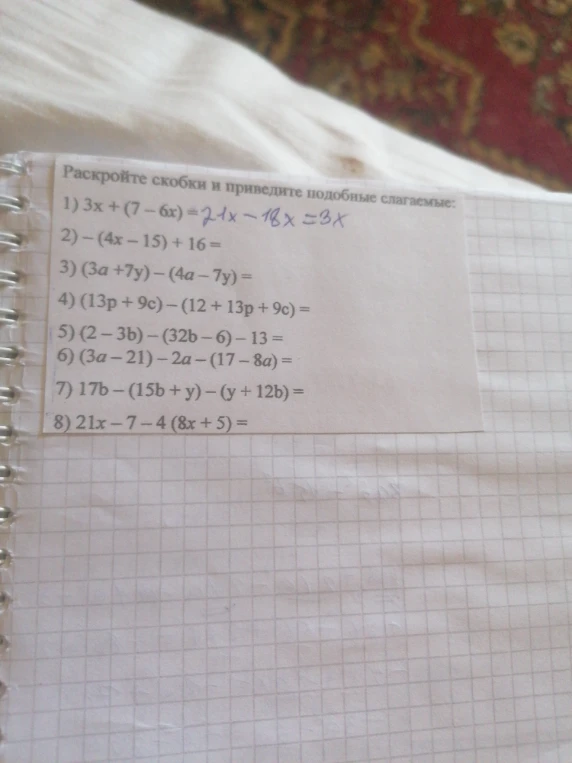 Раскройте скобки и приведите подобные слагаемые:
1) 3x + (7 – 6x) = 21x – 18x = 3x
2) – (4x – 15) + 16 =
3) (3a +7y) – (4a – 7y) =
4) (13p + 9c) – (12 + 13p + 9c) =
5) (2 – 3b) – (32b – 6) – 13 =
6) (3a – 21) – 2a – (17 – 8a) =
7) 17b – (15b + y) – (y + 12b) =
8) 21x – 7 – 4 (8x + 5) =